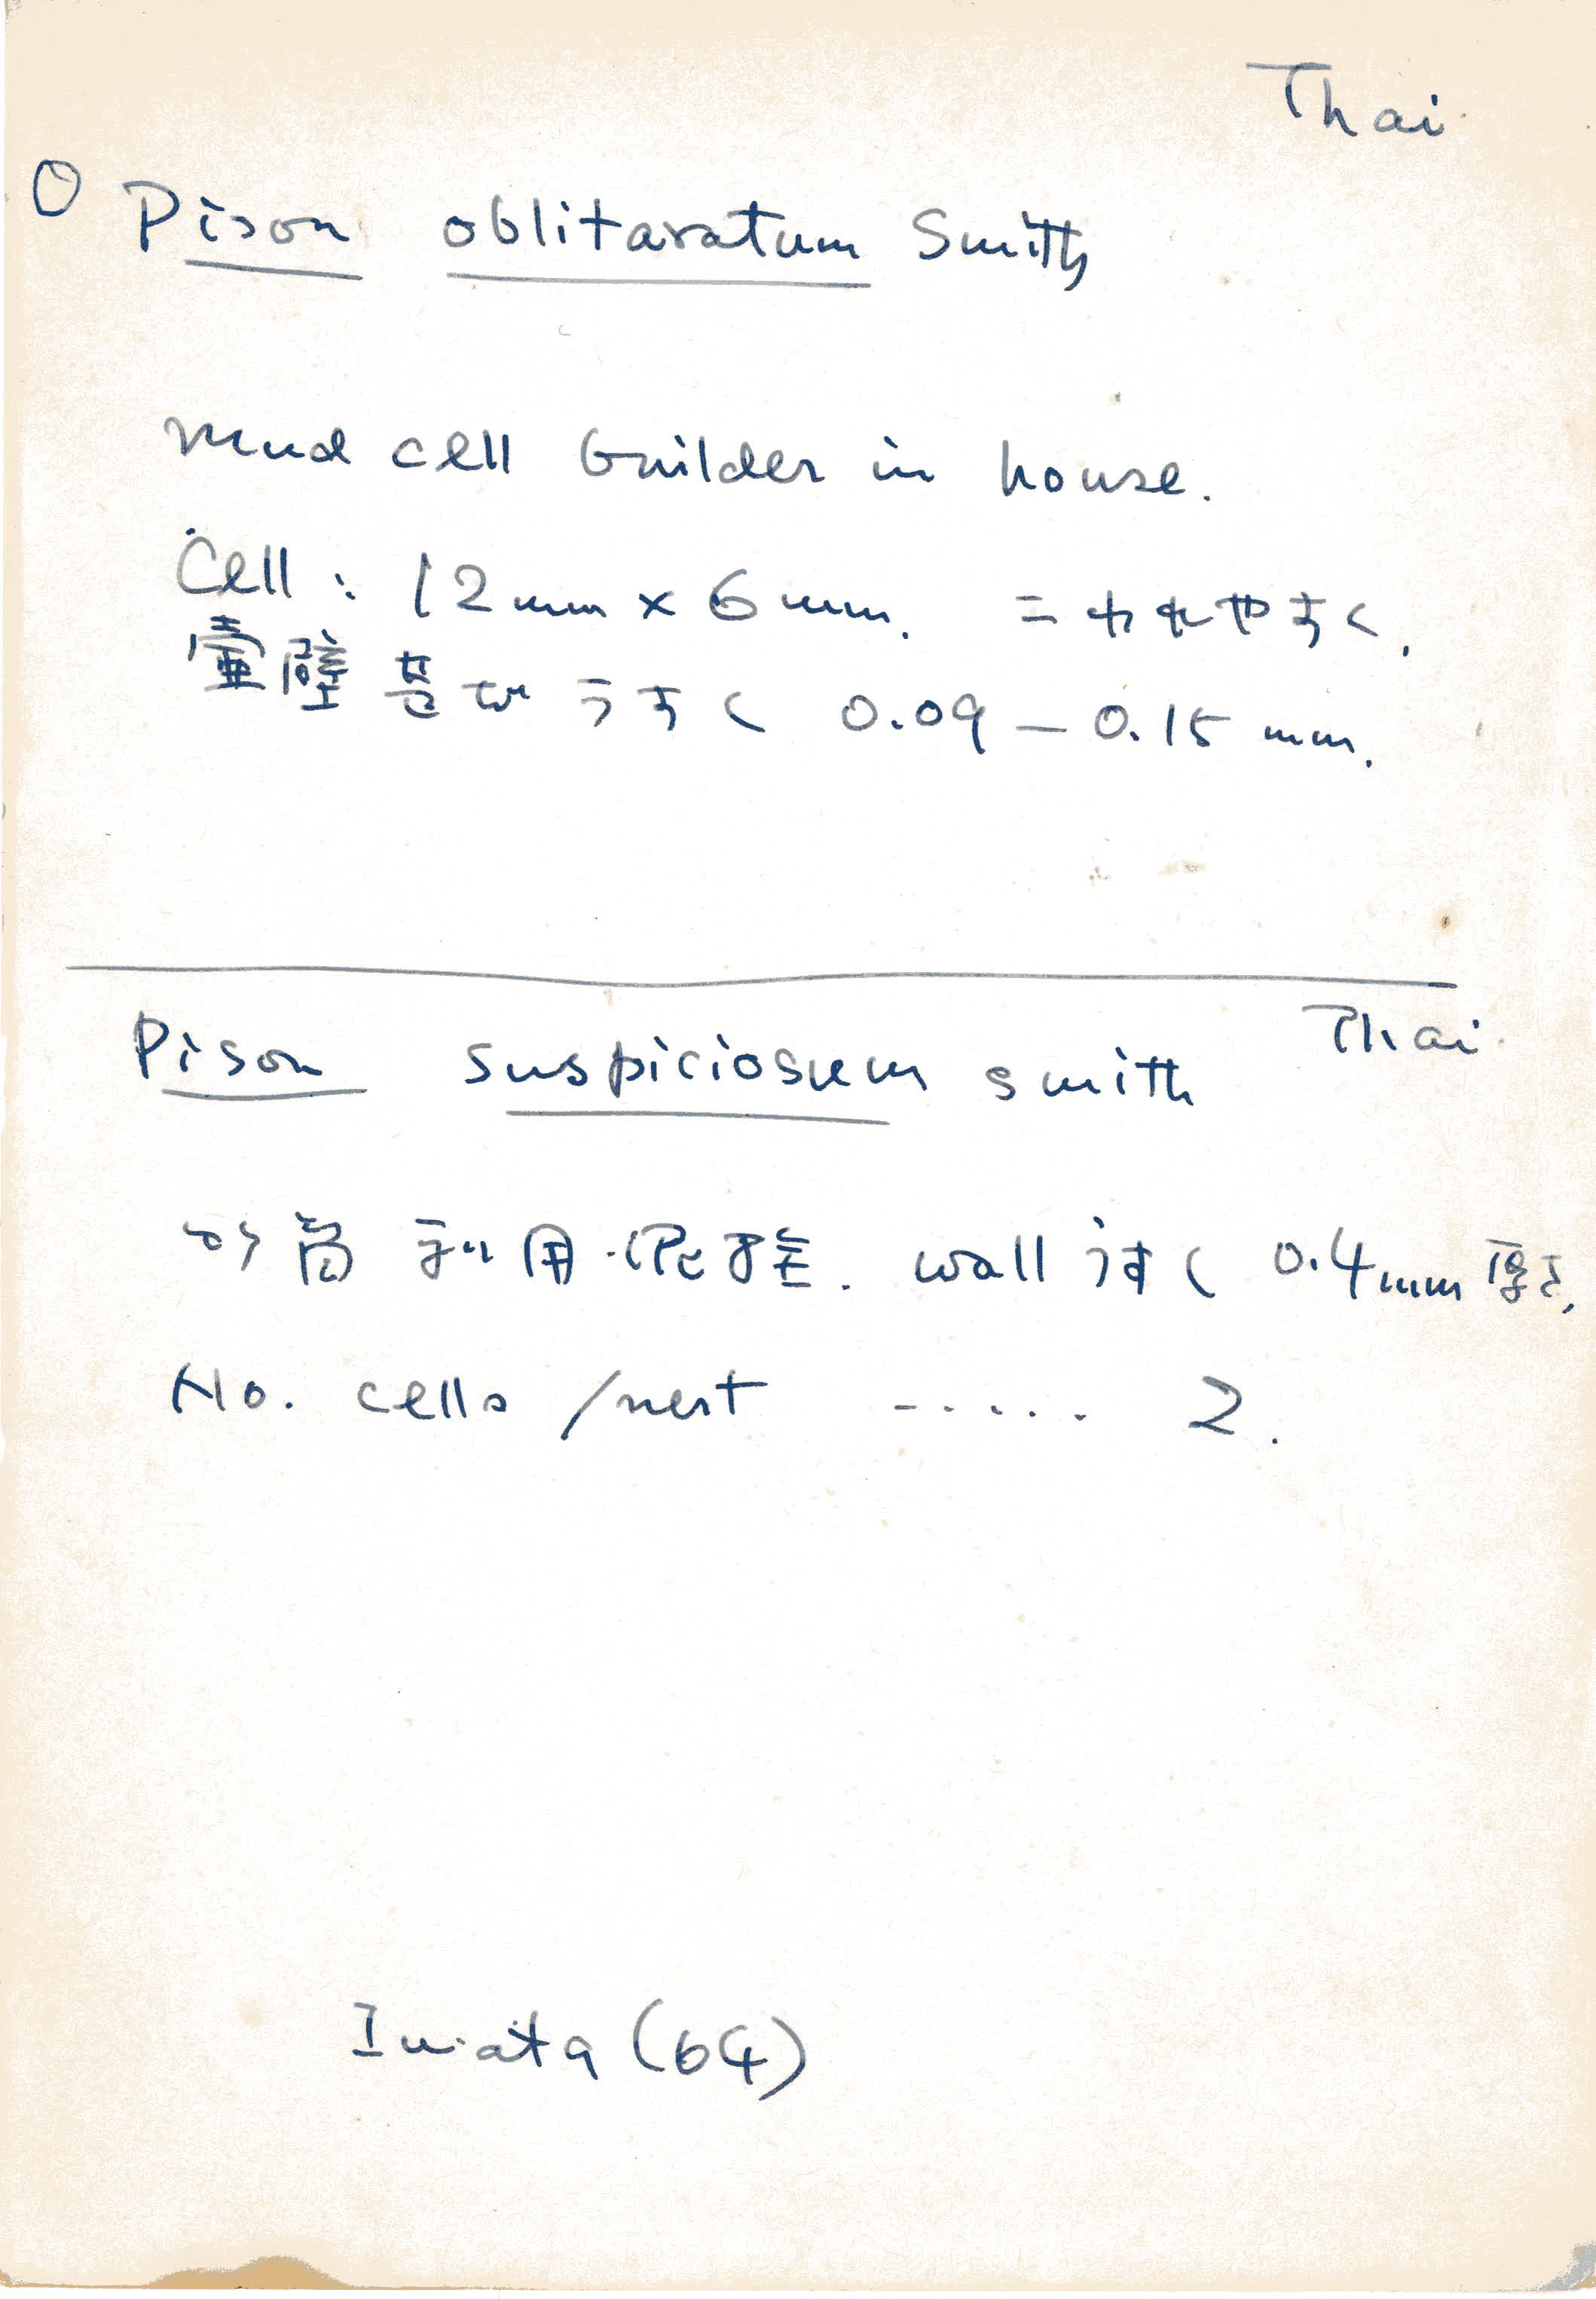 Thai
O Pison oblitaratum Smith
Mud cell builder in house.
Cell : 12mm × 6mm. こわれやすく,
壷壁 きびうすく 0.09 — 0.15 mm.
Pison suspiciosum smith Thai
筒 利用 wall うすく 0.4mm 厚さ,
No. cells /nest ..... 2.
Iwata (64)